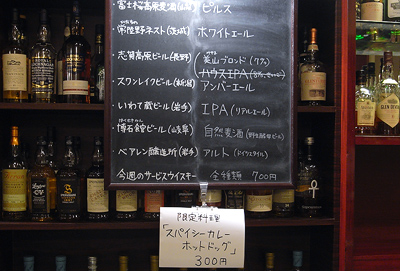 富士桜高原麦酒(山梨) ピルス
常陸野ネスト(茨城) ホワイトエール
志賀高原ビール(長野) 美山ブロンド(7%)
ハウスIPA
スワンレイクビール(新潟) アンバーエール
いわて蔵ビール(岩手) IPA(リアルエール)
博石館ビール(岐阜) 自然麦酒
ベアレン醸造所(岩手) アルト(ドイツスタイル)
今週のサービスウイスキー 全種類 700円
限定料理
「スパイシーカレー
ホットドッグ」
300円